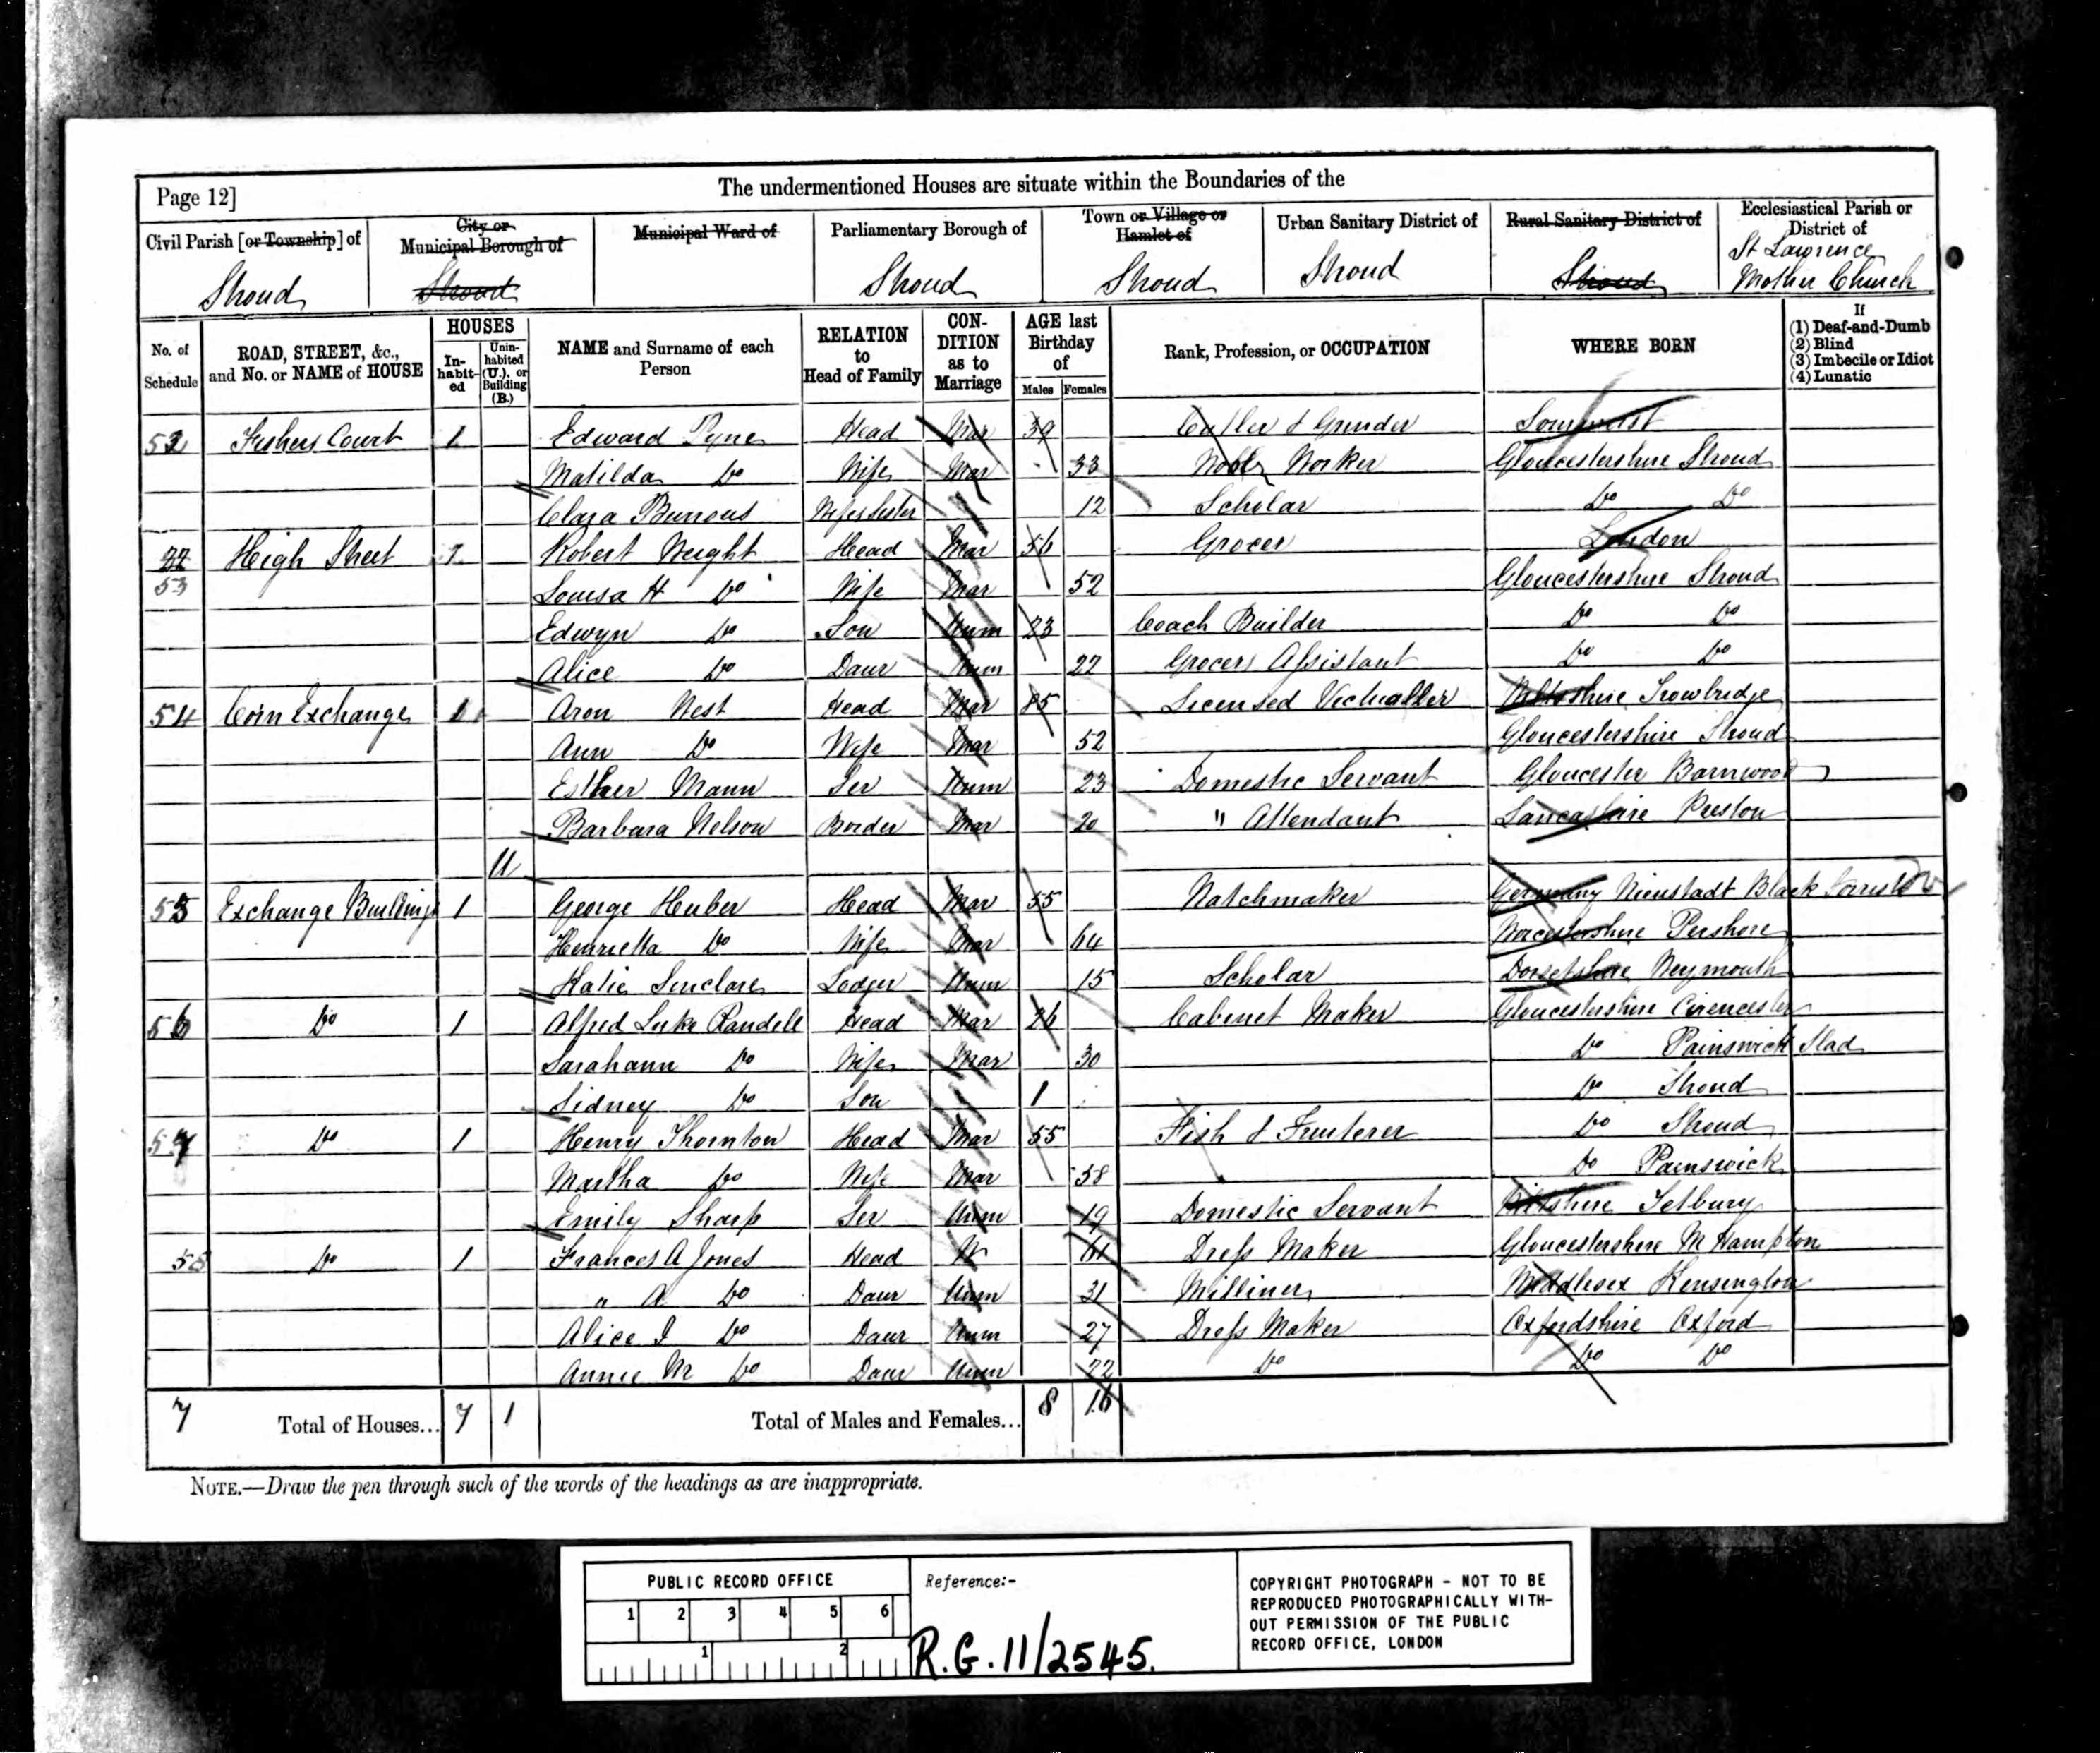 Page 12]
The undermentioned Houses are situate within the Boundaries of the
Civil Parish [or Township] of
City or Municipal Borough of
Municipal Ward of
Parliamentary Borough of
Town or Village or Hamlet of
Urban Sanitary District of
Rural Sanitary District of
Ecclesiastical Parish or District of
Stroud
Stroud
Stroud
Stroud
Stroud
Stroud
St Lawrence
Mother Church
No. of Schedule
ROAD, STREET, &c., and No. or NAME of HOUSE
HOUSES
In-habit-ed
Unin-habited (U.), or Building (B.)
NAME and Surname of each Person
RELATION to Head of Family
CON-DITION as to Marriage
AGE last Birthday of
Males
Females
Rank, Profession, or OCCUPATION
WHERE BORN
If
(1) Deaf-and-Dumb
(2) Blind
(3) Imbecile or Idiot
(4) Lunatic
52 Fishers Court 1 Edward Pyne Head Mar 39 Cutler & Grinder Somerset
Matilda Do Wife Mar 33 Worker Gloucestershire Stroud
Clara Burrows Wifes Sister 12 Scholar Do Do
53 High Street 1 Robert Weight Head Mar 56 Grocer London
Louisa H Do Wife Mar 52 Gloucestershire Stroud
Edwyn Do Son Unm 23 Coach Builder Do Do
Alice Do Daur Unm 22 Grocers Assistant Do Do
54 Corn Exchange 1 Aron West Head Mar Licensed Victualler Wiltshire Trowbridge
Ann Do Wife Mar 52 Gloucestershire Stroud
Esther Mann Ser Unm 23 Domestic Servant Gloucester Barnwood
Barbara Nelson Border Mar 20 " Attendant Lancashire Preston
U
55 Exchange Buildings 1 George Huber Head Mar 55 Watchmaker Germany Nieustadt Black
Henrietta Do Wife Mar 64 Worcestershire Pershore
Katie Sinclare Lodger Unm 15 Scholar Dorsetshire Weymouth
56 Do 1 Alfred Luke Randell Head Mar 26 Cabinet Maker Gloucestershire Cirencester
Sarahann Do Wife Mar 30 Do Painswick Slad
Sidney Do Son 1 Do Stroud
57 Do 1 Henry Thornton Head Mar 55 Fish & Fruiterer Do Stroud
Martha Do Wife Mar 58 Do Painswick
Emily Sharp Ser Unm 19 Domestic Servant Wiltshire Tetbury
58 Do 1 Frances A Jones Head W 61 Dress Maker Gloucestershire M Hampton
" A Do Daur Unm 31 Milliner Middlesex Kensington
Alice J Do Daur Unm 27 Dress Maker Oxfordshire Oxford
Annie M Do Daur Unm 22 Do Do Do
7 Total of Houses... 7 1 Total of Males and Females... 8 16
NOTE.—Draw the pen through such of the words of the headings as are inappropriate.
PUBLIC RECORD OFFICE
1 2 3 4 5 6
1 2
Reference:-
R.G. 11/2545.
COPYRIGHT PHOTOGRAPH - NOT TO BE
REPRODUCED PHOTOGRAPHICALLY WITH-
OUT PERMISSION OF THE PUBLIC
RECORD OFFICE, LONDON